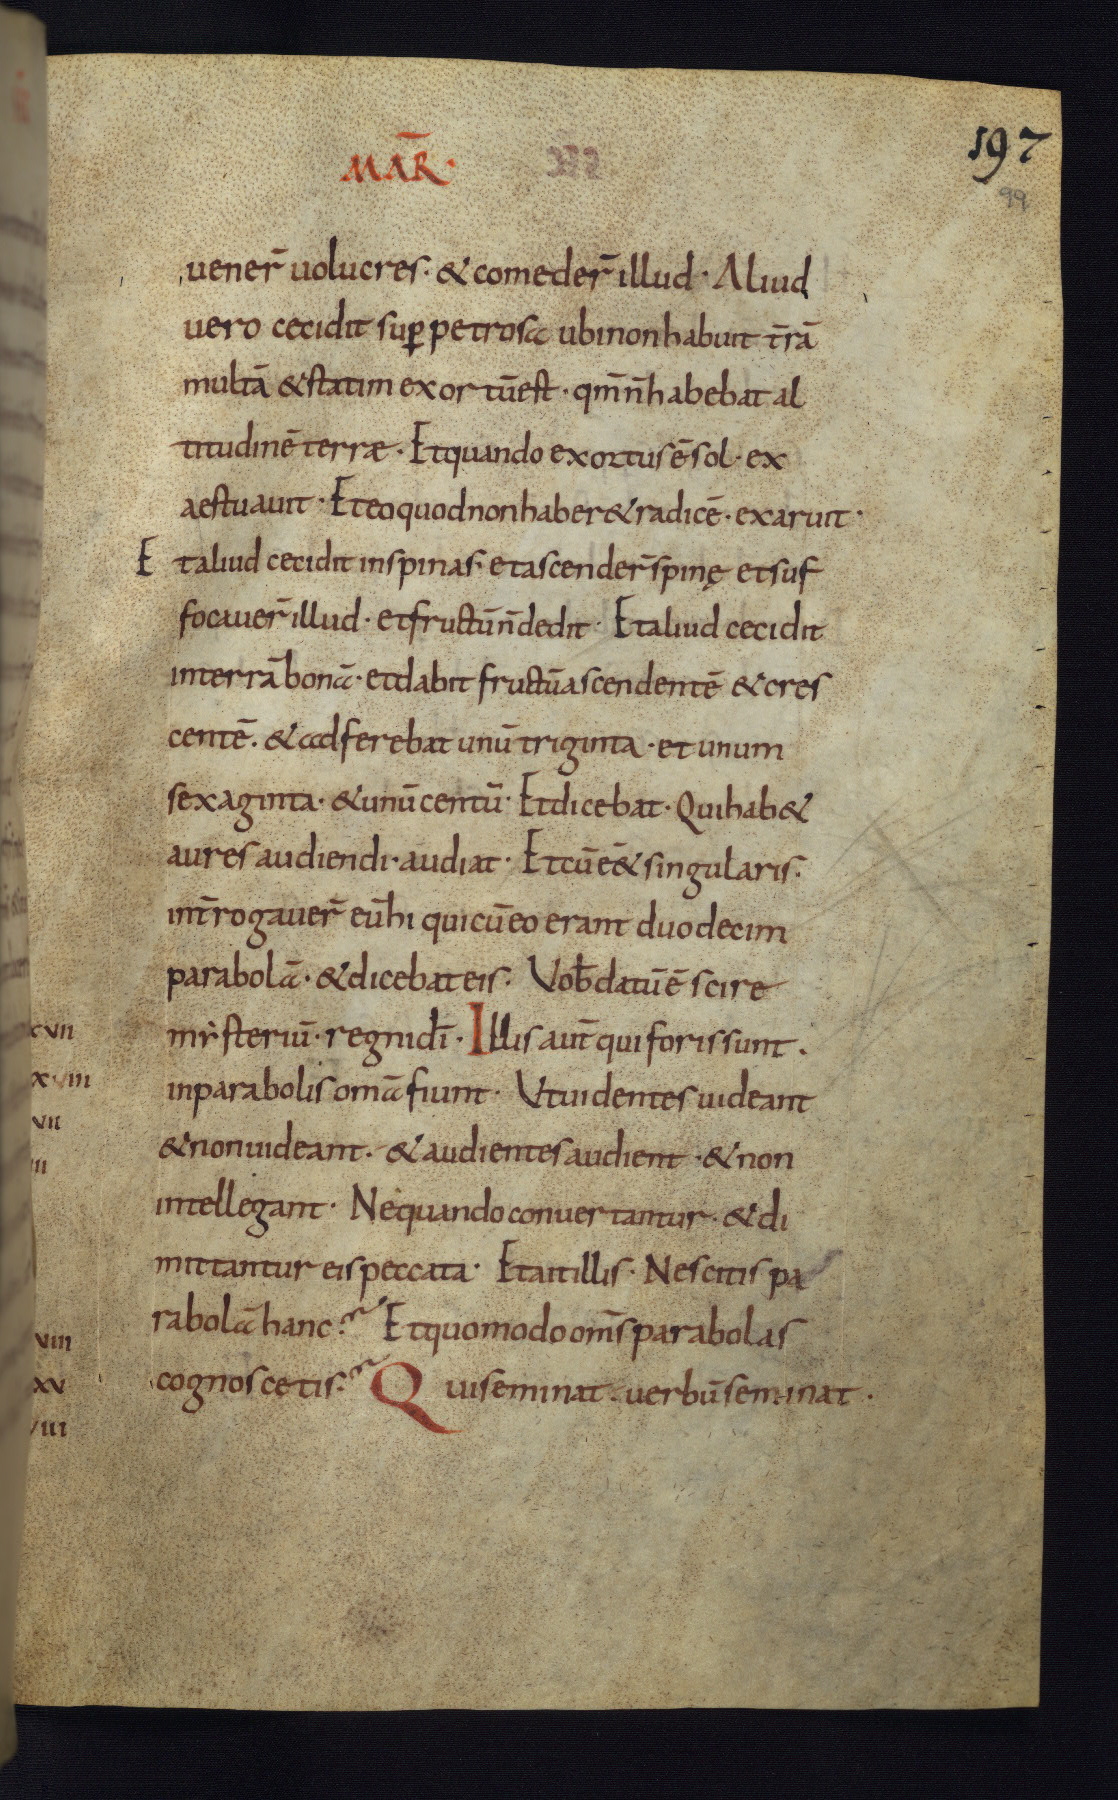 MAR̄·
197
99
uener̄ uolucres· & comeder̄ illud· Aliud
uero cecidit sup̱ petrosā ubi non habuit t̄rā
multā & statim exortū est· qm̄ n̄ habebat al
titudinē terræ· Et quando exortus ē sol· ex
aestuauit· Et eo quod non haber& radicē· exaruit·
Et aliud cecidit in spinas· et ascender̄ spinę et suf
focauer̄ illud· et fructū n̄ dedit· Et aliud cecidit
in terrā bonā· et dabit fructū ascendentē & cres
centē· & adferebat unū triginta· et unum
sexaginta· & unū centū· Et dicebat· Qui hab&
aures audiendi· audiat· Et cū ēē& singularis·
int̄rogauer̄ eū hi qui cū eo erant duodecim
parabolā· & dicebat eis· Vob̄ datū ē scire
mẏsteriū· regni dī· Illis aut̄ qui foris sunt·
in parabolis omā fiunt· Vt uidentes uideant
& non uideant· & audientes audient· & non
intellegant· Nequando conuertantur· & di
mittantur eis peccata· Et ait illis· Nescitis pa
rabolā hanc· Et quomodo om̄s parabolas
cognoscetis· Qui seminat· uerbū seminat·
cvii
x viii
vii
iii
viii
xv
viii